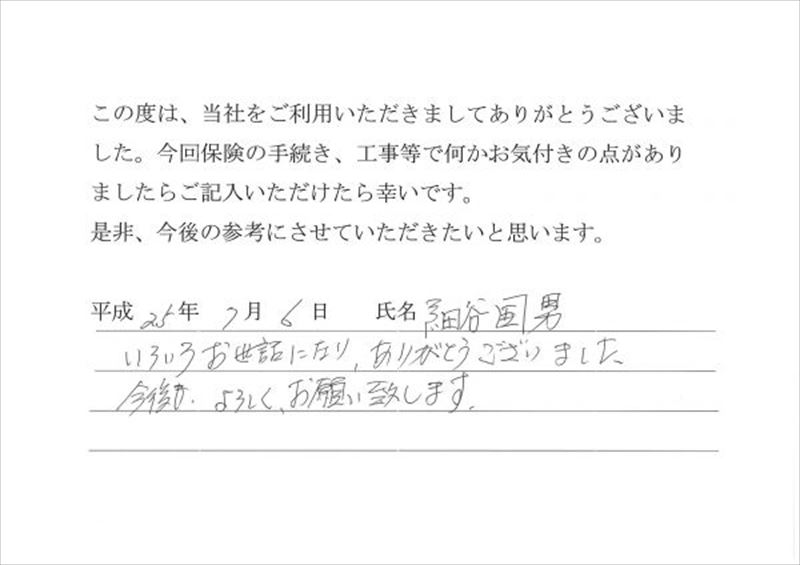 この度は、当社をご利用いただきましてありがとうございま
した。今回保険の手続き、工事等で何かお気付きの点があり
ましたらご記入いただけたら幸いです。
是非、今後の参考にさせていただきたいと思います。
平成 25年 7月 6日 氏名 細谷国男
いろいろお世話になり、ありがとうございました。
今後も、よろしく、お願い致します。